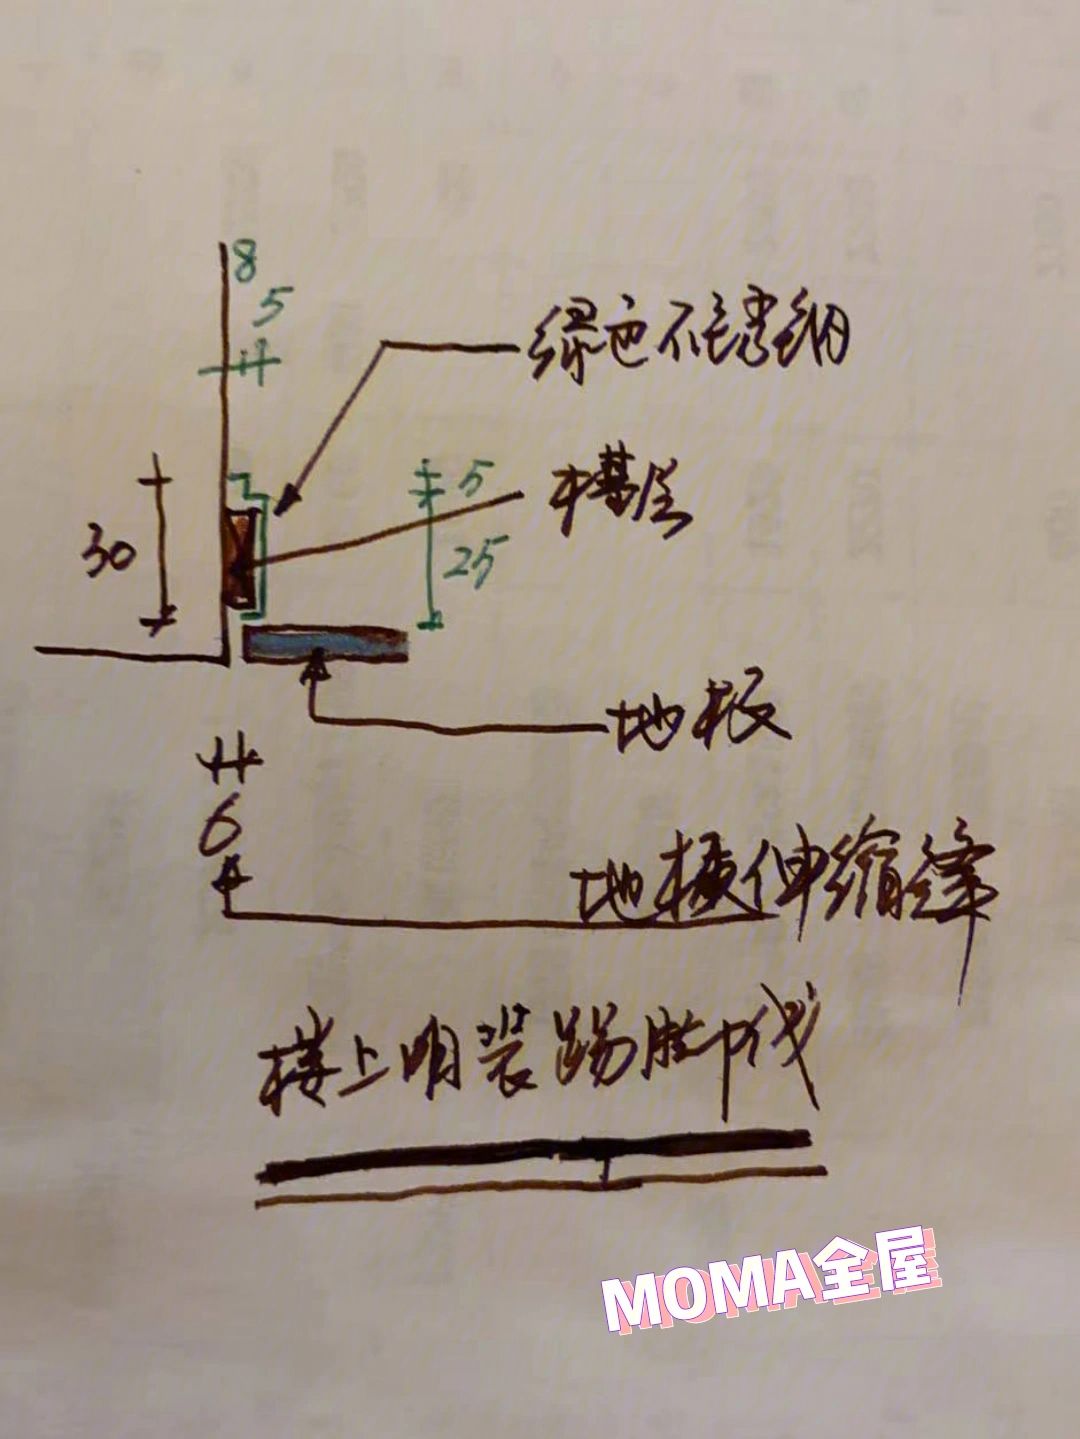 8
5
绿色不锈钢
5
木基层
30
25
地板
6
地板伸缩缝
楼上明装踢脚线
MOMA全屋